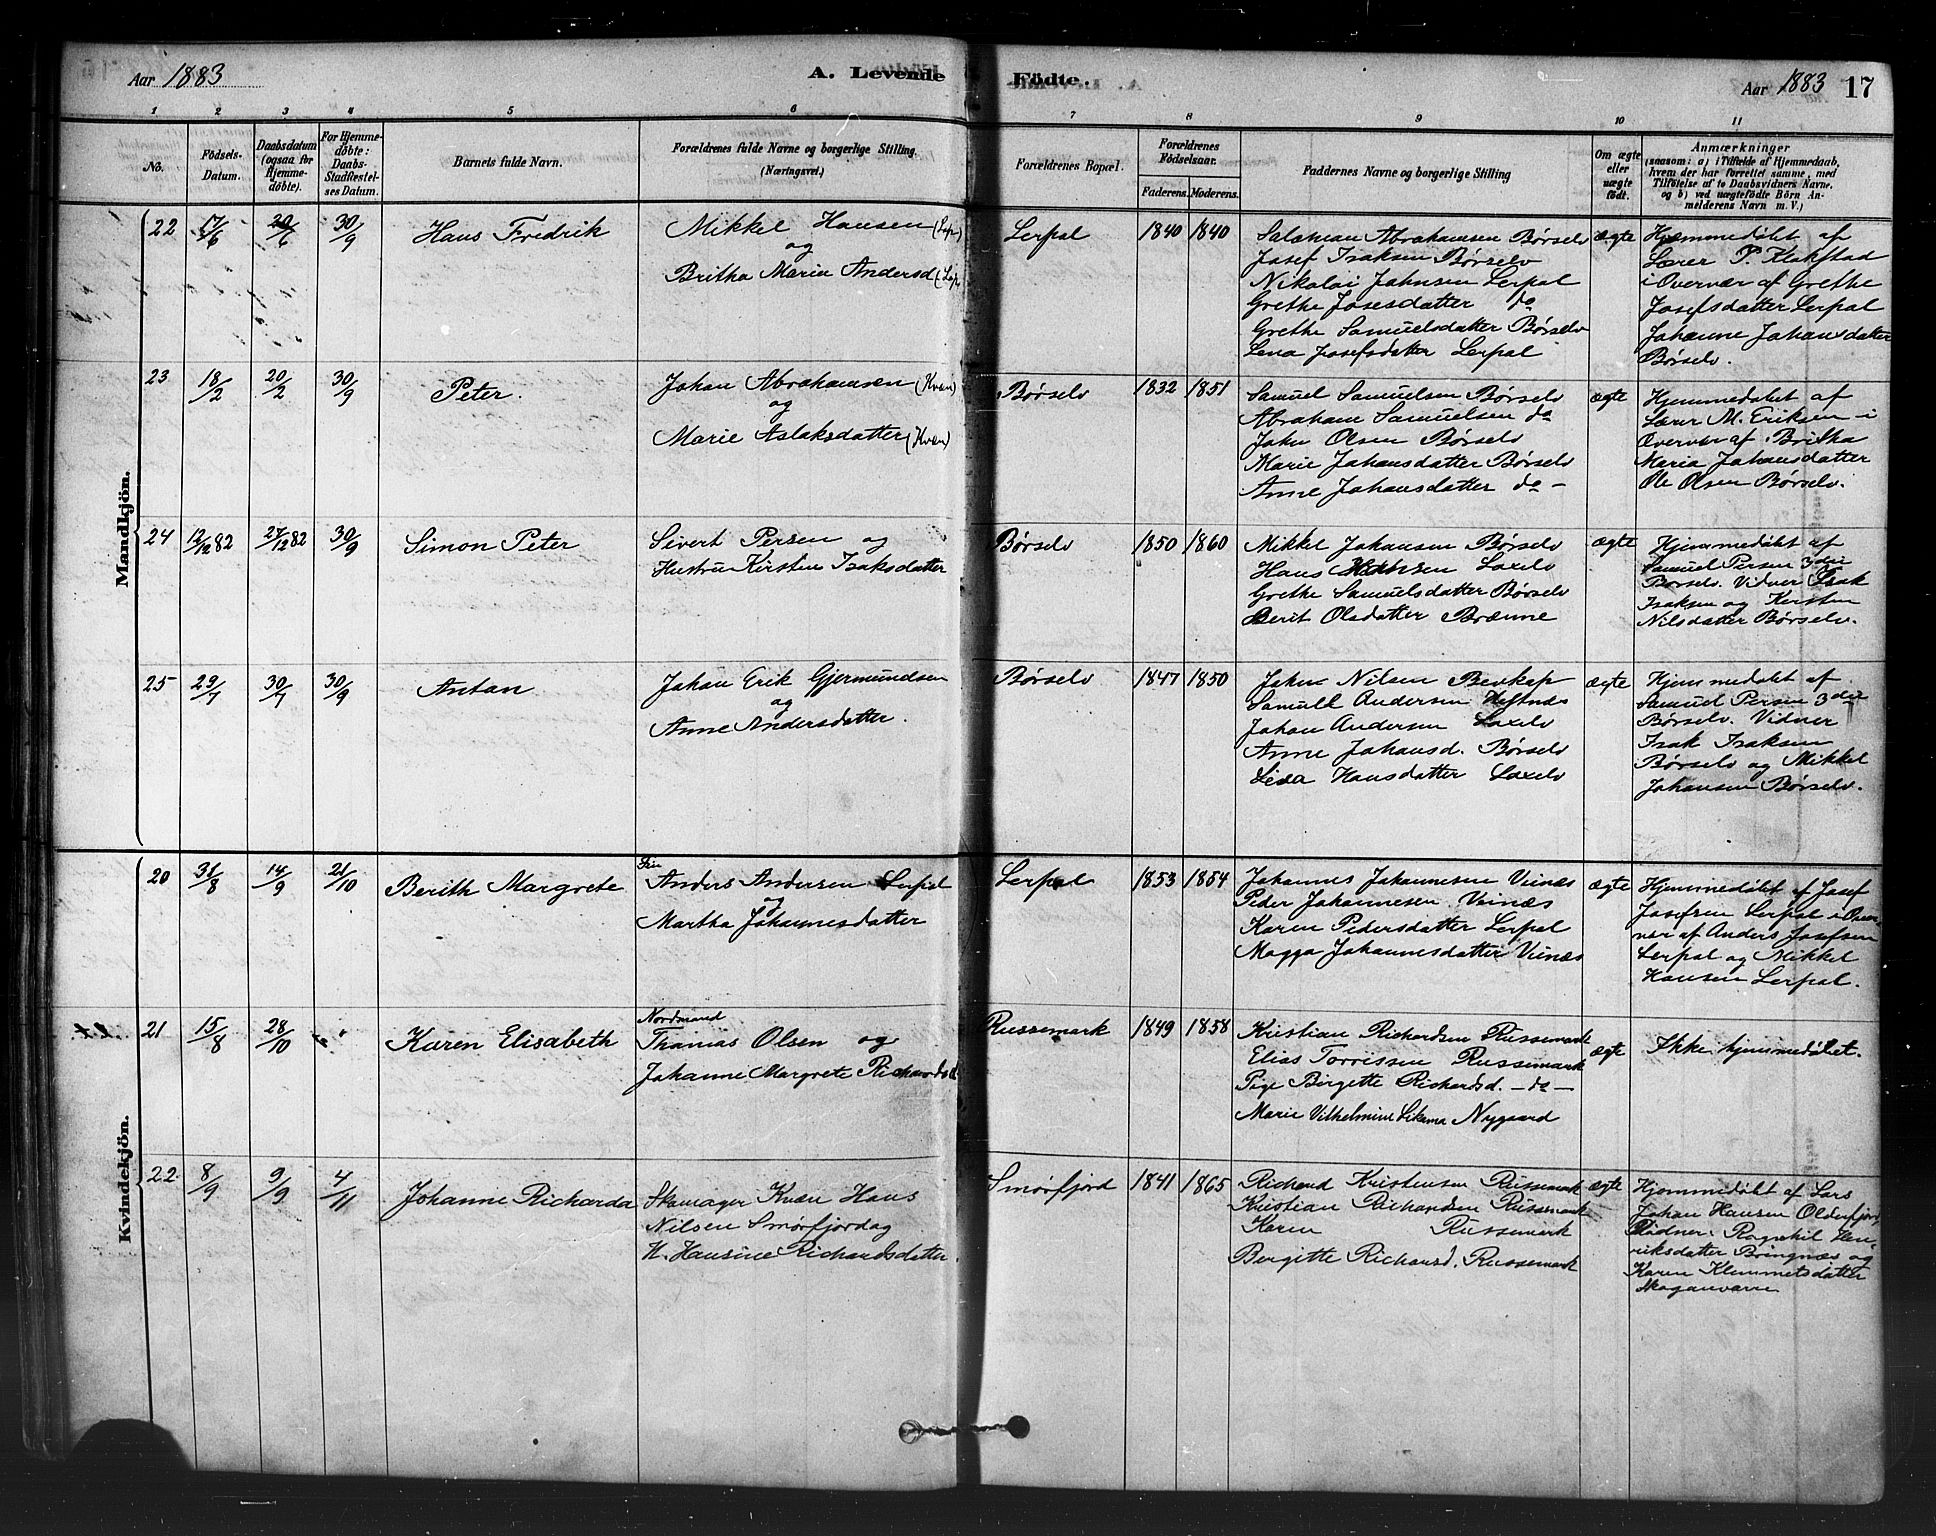 Aar 1883
A. Levende Födte.
Aar 1883 17
1 2 3 4 5 6 7 8 9 10 11
No.
Födsels-
Datum.
Daabsdatum
(ogsaa for
Hjemme-
döbte).
For Hjemme-
döbte:
Daabs-
Stadfæstel-
ses Datum.
Barnets fulde Navn.
Forældrenes fulde Navne og borgerlige Stilling.
(Næringsvei.)
Forældrenes Bopæl.
Forældrenes
Födselsaar.
Faderens. Moderens.
Faddernes Navne og borgerlige Stilling
Om ægte
eller
uægte
født.
Anmærkninger
(saasom: a) i Tilfælde af Hjemmedaab,
hvem der har forrettet samme, med
Tilföielse af to Daabsvidners Navne,
og b) ved uægtefödte Börn An-
melderens Navn m. V.)
Mandkjön.
22 17/6 20/6 30/9
Hans Fredrik
Mikkel Hansen (Lap)
og
Britha Maria Andersd (Lap
Lerpal
1840 1840
Salamian Abrahamsen Børselv
Josef Isaksen Børselv
Nikolai Johnsen Lerpal
Grethe Josefsdatter do
Grethe Samuelsdatter Børselv
Lena Josefsdatter Lerpal
ægte
Hjemmedøbt af
Lærer P. Klakstad
i Overvær af Grethe
Josefsdatter Lerpal
Johanne Johansdatter
Børselv.
23 18/2 20/2 30/9
Peter.
Johan Abrahamsen (Kvæn)
og
Marie Aslaksdatter (Kvæn)
Børselv
1832 1851
Samuel Samuelsen Børselv
Abraham Samuelsen do
John Olsen Børselv
Marie Johansdatter Børselv
Anne Johansdatter do –
ægte
Hjemmedøbt af
Lærer M. Eriksen – i
Overvær af Britha
Maria Johansdatter
Ole Olsen Børselv.
24 12/12 82 27/12 82 30/9
Simon Peter
Sivert Persen og
Hustru Kirsten Isaksdatter
Børselv
1850 1860
Mikkel Johansen Børselv
Hans Laxelv
Grethe Samuelsdatter Børselv
Berit Olsdatter Brænne
ægte
Hjemmedøbt af
Samuel Persen 3die
Børselv. Vidner Isak
Isaksen og Kirsten
Nilsdatter Børselv.
25 29/7 30/7 30/9
Anton
Johan Erik Gjermundsen
og
Anne Andersdatter.
Børselv
1847 1850
John Nilsen Bevkop
Samuel Andersen Hestnæs
Johan Andersen Laxelv
Anne Johansd. Børselv
Lisa Hansdatter Laxelv
ægte
Hjemmedøbt af
Samuel Persen 3die
Børselv. Vidner
Isak Isaksen
Børselv og Mikkel
Johansen Børselv.
Kvindekjön.
20 31/8 14/9 21/10
Berith Margrete
Fin
Anders Andersen Lerpal
og
Martha Johannesdatter
Lerpal
1853 1854
Johannes Johannesen Veinæs
Peder Johannesen Veinæs
Karen Pedersdatter Lerpal
Magga Johannesdatter Veinæs
ægte
Hjemmedøbt af Josef
Josefsen Lerpal i Over-
vær af Anders Josefsen
Lerpal og Mikkel
Hansen Lerpal.
21 15/8 28/10 "
Karen Elisabeth
Nordmand
Thomas Olsen og
Johanne Margrete Richardsd.
Russemark
1849 1858
Kristian Richardsen Russemark
Elias Torrissen Russemark
Pige Birgette Richardsd. – do –
Marie Vilhelmine Nygaard
ægte
Ikke hjemmedøbt.
22. 8/9 9/9 4/11
Johanne Richarda
Skomager Kvæn Hans
Nilsen Smørfjord og
H. Hansine Richardsdatter.
Smørfjord
1841 1865
Richard Kristensen Russemark
Kristian Richardsen Russemark
Karen Russemark
Bergitte Richarsd. Russemark
ægte
Hjemmedøbt af Lars
Johan Hansen Olderfjord
Vidner. Ragnhil Hen-
riksdatter Bringnæs og
Karen Klemmetsdatter
Skoganvarre